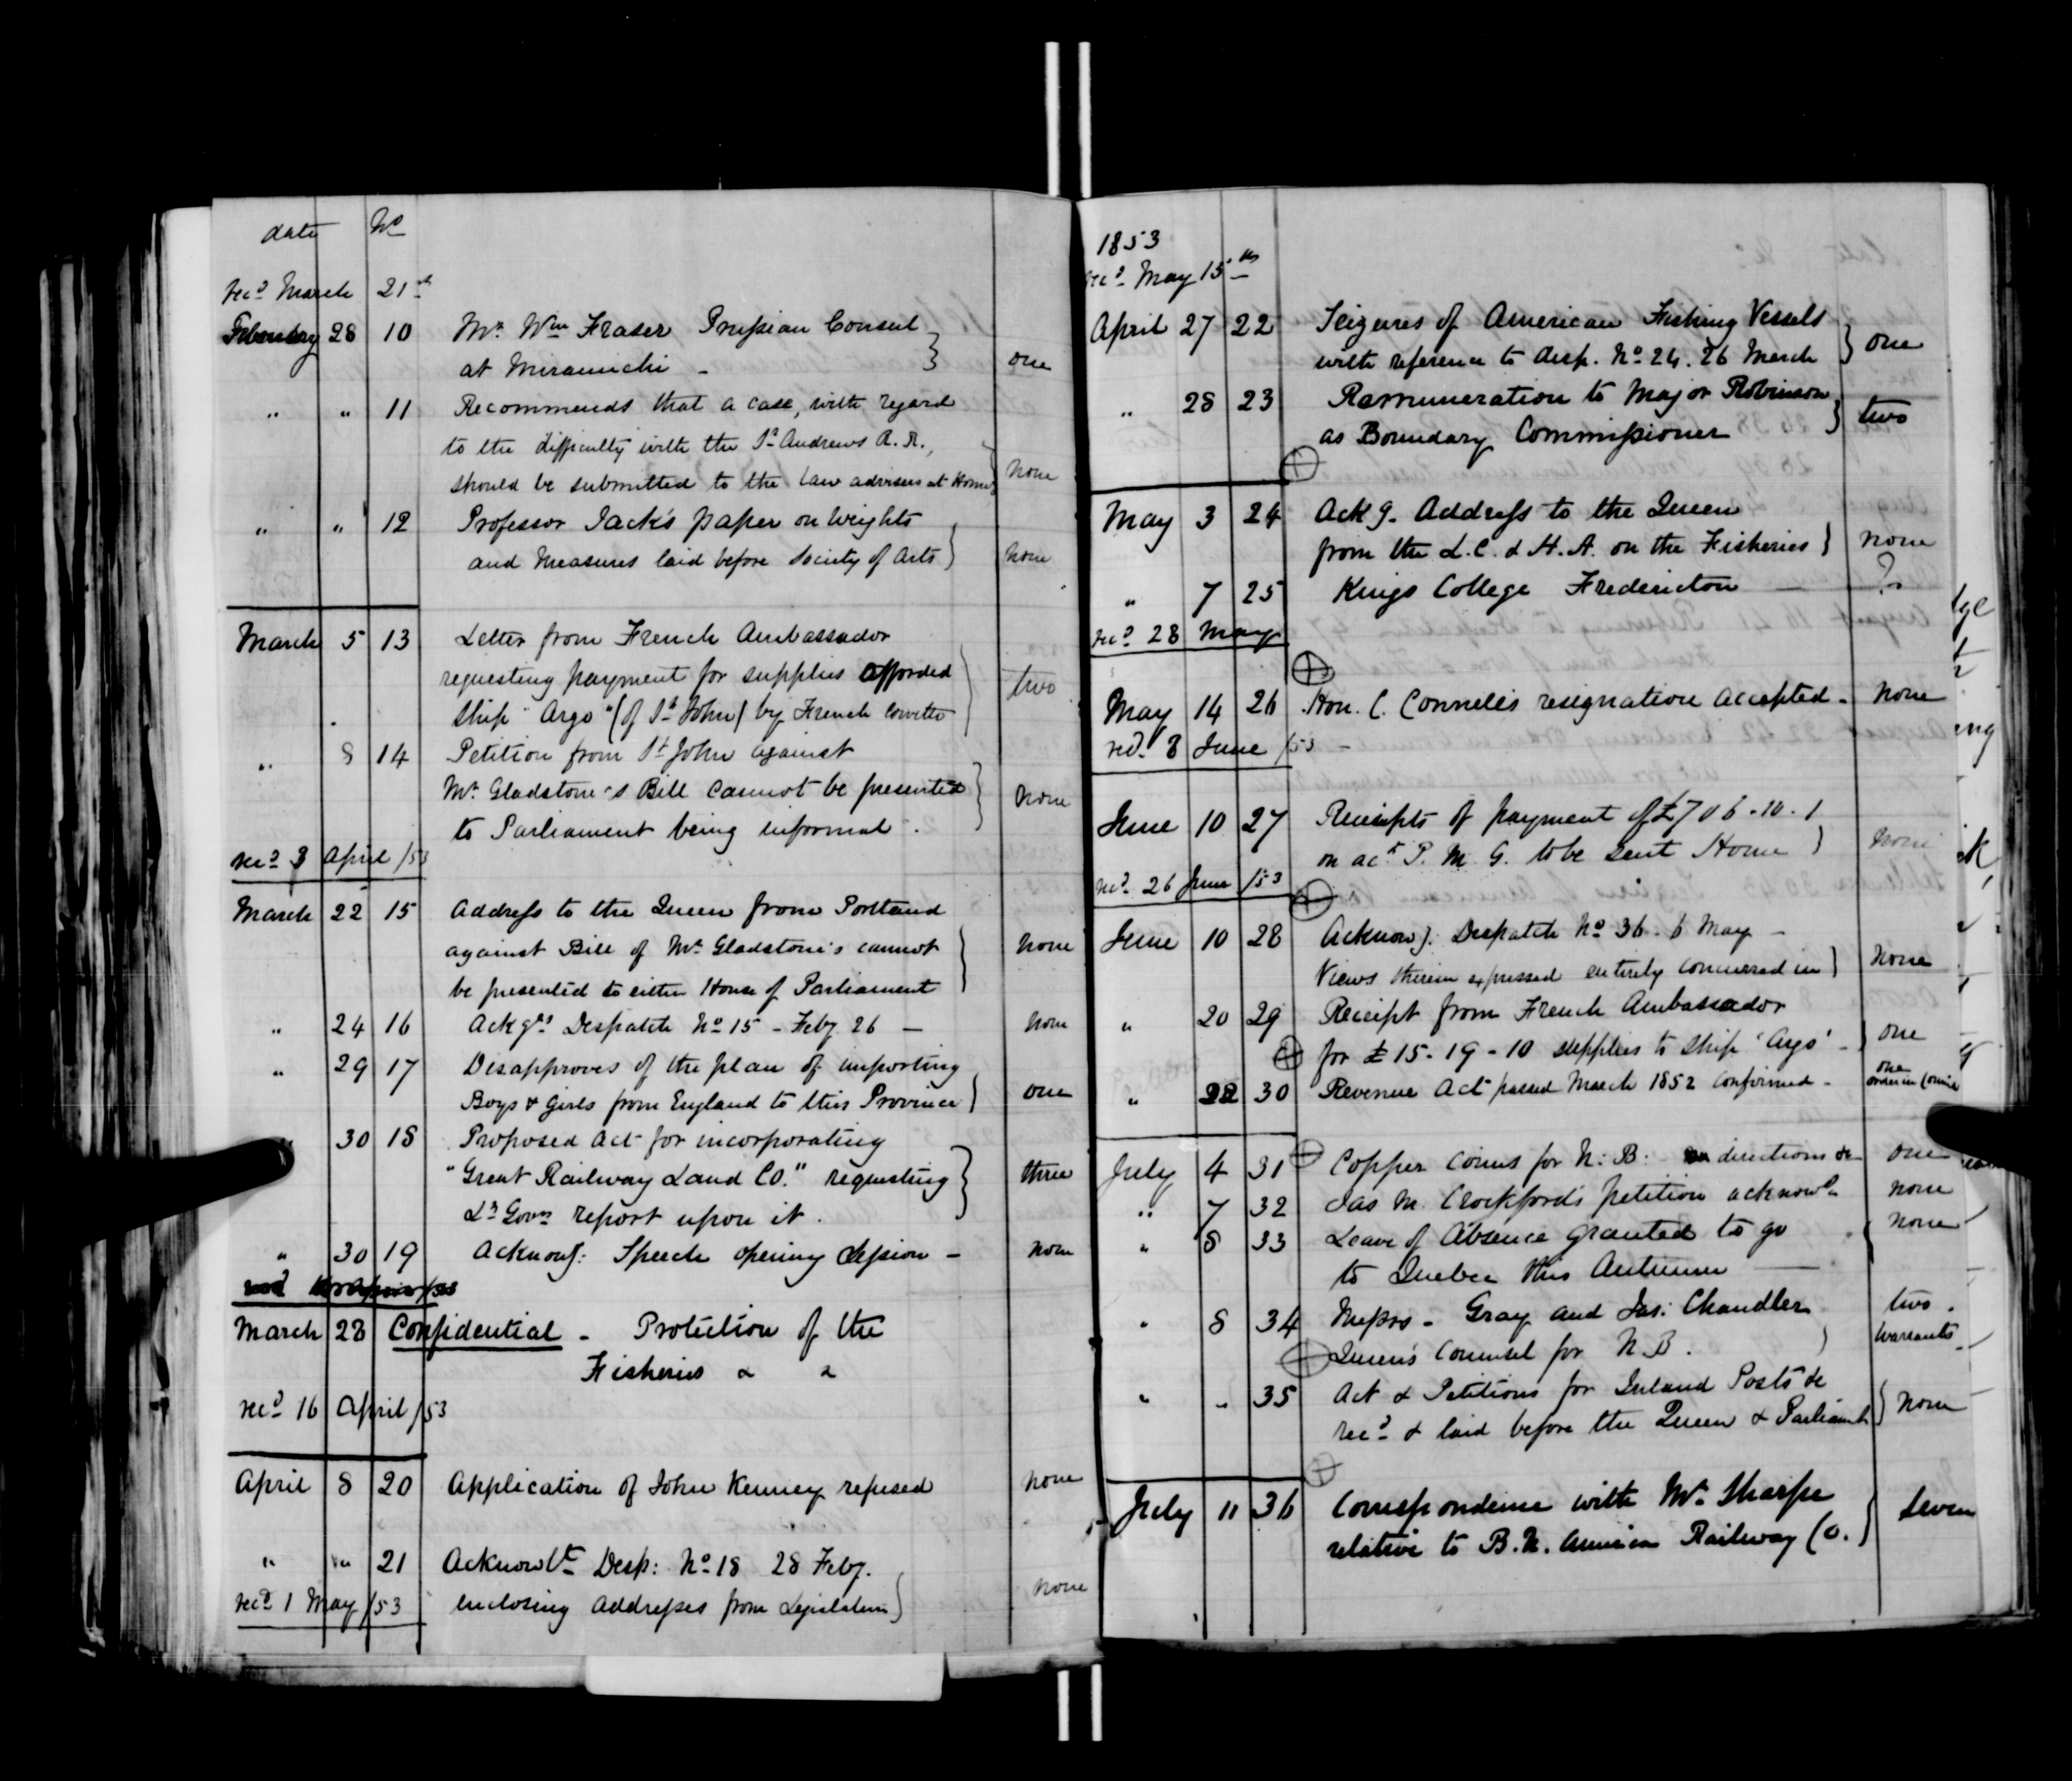 date No
recd March 21st
February 28 10 Mr. Wm Fraser Prussian Consul
at Miramichi - one
" " 11 Recommends that a case, with regard
to the difficulty with the St Andrews R. R.,
should be submitted to the Law advisers at Home none
" " 12 Professor Jack's paper on Weights
and Measures laid before Society of Arts none
March 5 13 Letter from French Ambassador
requesting payment for supplies afforded
Ship "Argo" (of St John) by French Corvette two
" 8 14 Petition from St John against
Mr. Gladstone's Bill cannot be presented
to Parliament being informal. none
recd 3 April /53
March 22 15 Address to the Queen from Portland
against Bill of Mr. Gladstone's cannot
be presented to either House of Parliament none
" 24 16 Ackgds Despatch No 15 - Feby 26 - none
" 29 17 Disapproves of the plan of importing
Boys & Girls from England to this Province one
" 30 18 Proposed Act for incorporating
"Great Railway Land Co." requesting
Lt Govrs report upon it. three
" 30 19 Acknowg: Speech opening Session - none
March 28 Confidential - Protection of the
Fisheries & &
recd 16 April /53
April 8 20 Application of John Kenney refused none
" " 21 Acknowlt Desp: No 18 28 Feby.
recd 1 May /53 enclosing addresses from Legislature none
1853
recd May 15th
April 27 22 Seizures of American Fishing Vessels
with reference to disp. No 24. 26 March one
" 28 23 Remuneration to Major Robinson
as Boundary Commissioner two
May 3 24 Ackg. Address to the Queen
from the L. C. & H. A. on the Fisheries none
" 7 25 Kings College Fredericton —
recd 28 May
May 14 26 Hon. C. Connell's resignation accepted - none
recd. 8 June /53 -
June 10 27 Receipts of payment of £706-10-1
on act P. M. G. to be sent Home none
recd 26 June /53
June 10 28 Acknowg: Despatch No 36 - 6 May -
Views therein expressed entirely concurred in none
" 20 29 Receipt from French Ambassador
for £15-19-10 supplies to Ship 'Argo' - one
" 22 30 Revenue Act passed March 1852 confirmed - one
order in Council
July 4 31 Copper Coins for N: B: directions &c one
" 7 32 Jas M. Crockford's petition acknowd none
" 8 33 Leave of Absence granted to go
to Quebec this Autumn — none
" 8 34 Messrs - Gray and Jas: Chandler two
Queen's Counsel for N. B. Warrants
" " 35 Act & Petitions for Inland Posts &c
recd & laid before the Queen & Parliamt none
July 11 36 Correspondence with Mr. Sharpe
relative to B. N. America Railway Co. Seven